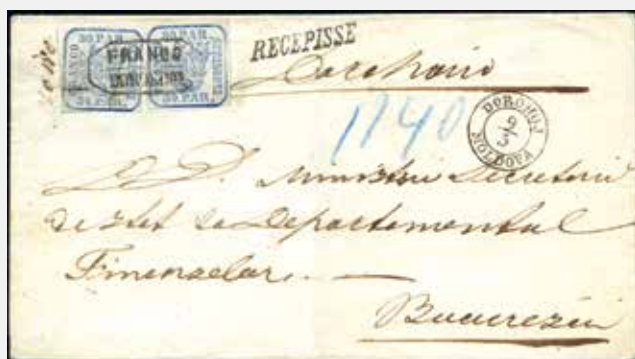 30 PAR. 30 PAR.
FRANCO
FRANCO
30 PAR. 30 PAR.
RECEPISSE
Dorohoiu
1140
DOROHOJ
9/3
MOLDOVA
D. D. Ministru Secretariu
de Stat la Departamentul
Finanselor
Bucuresci